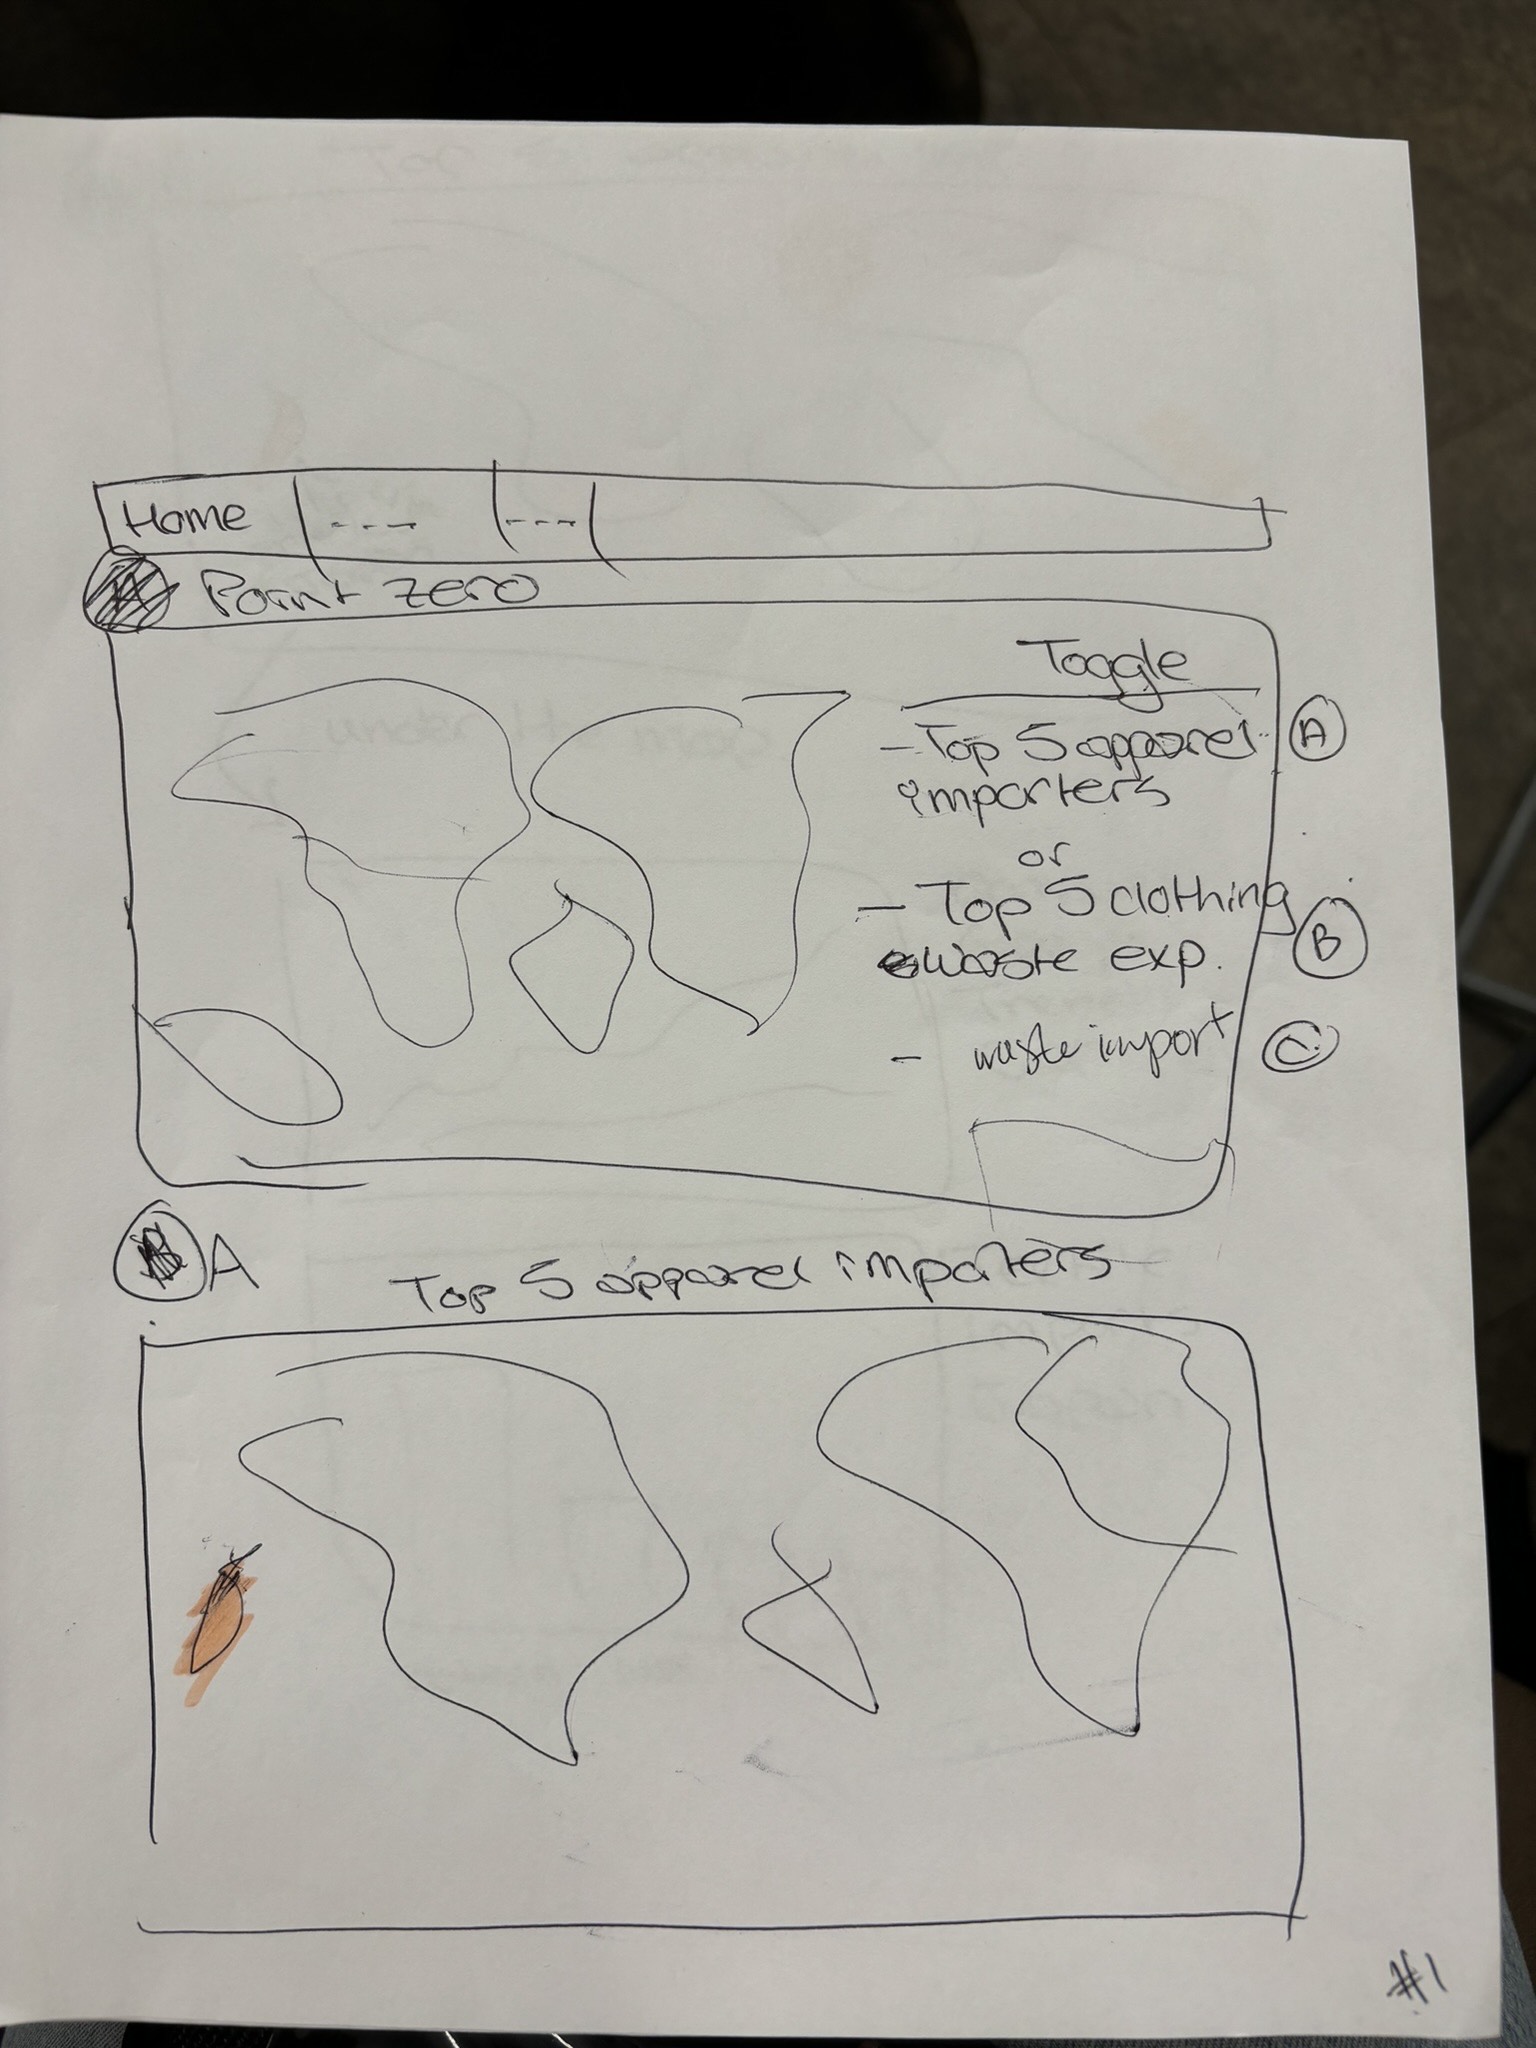 Home | --- | --- |
Point zero
Toggle
- Top 5 apparel
importers
A
or
- Top 5 clothing
waste exp.
B
- waste import
C
A
Top 5 apparel importers
#1